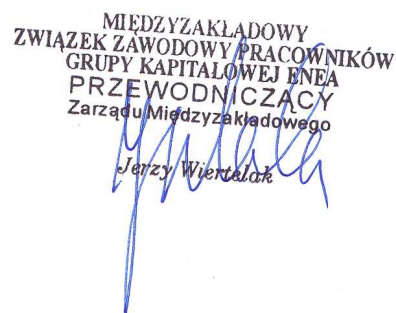 MIĘDZYZAKŁADOWY
ZWIĄZEK ZAWODOWY PRACOWNIKÓW
GRUPY KAPITAŁOWEJ ENEA
PRZEWODNICZĄCY
Zarządu Międzyzakładowego
Jerzy Wiertelak